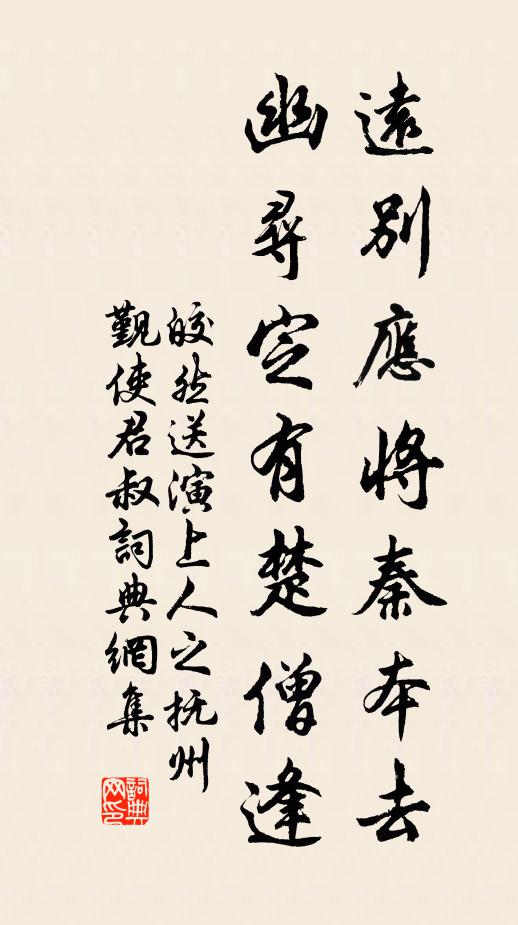 遠別應將秦本去
幽尋定有楚僧逢
皎然送演上人之抚州
覲使君叔詞典網集
詞典网印